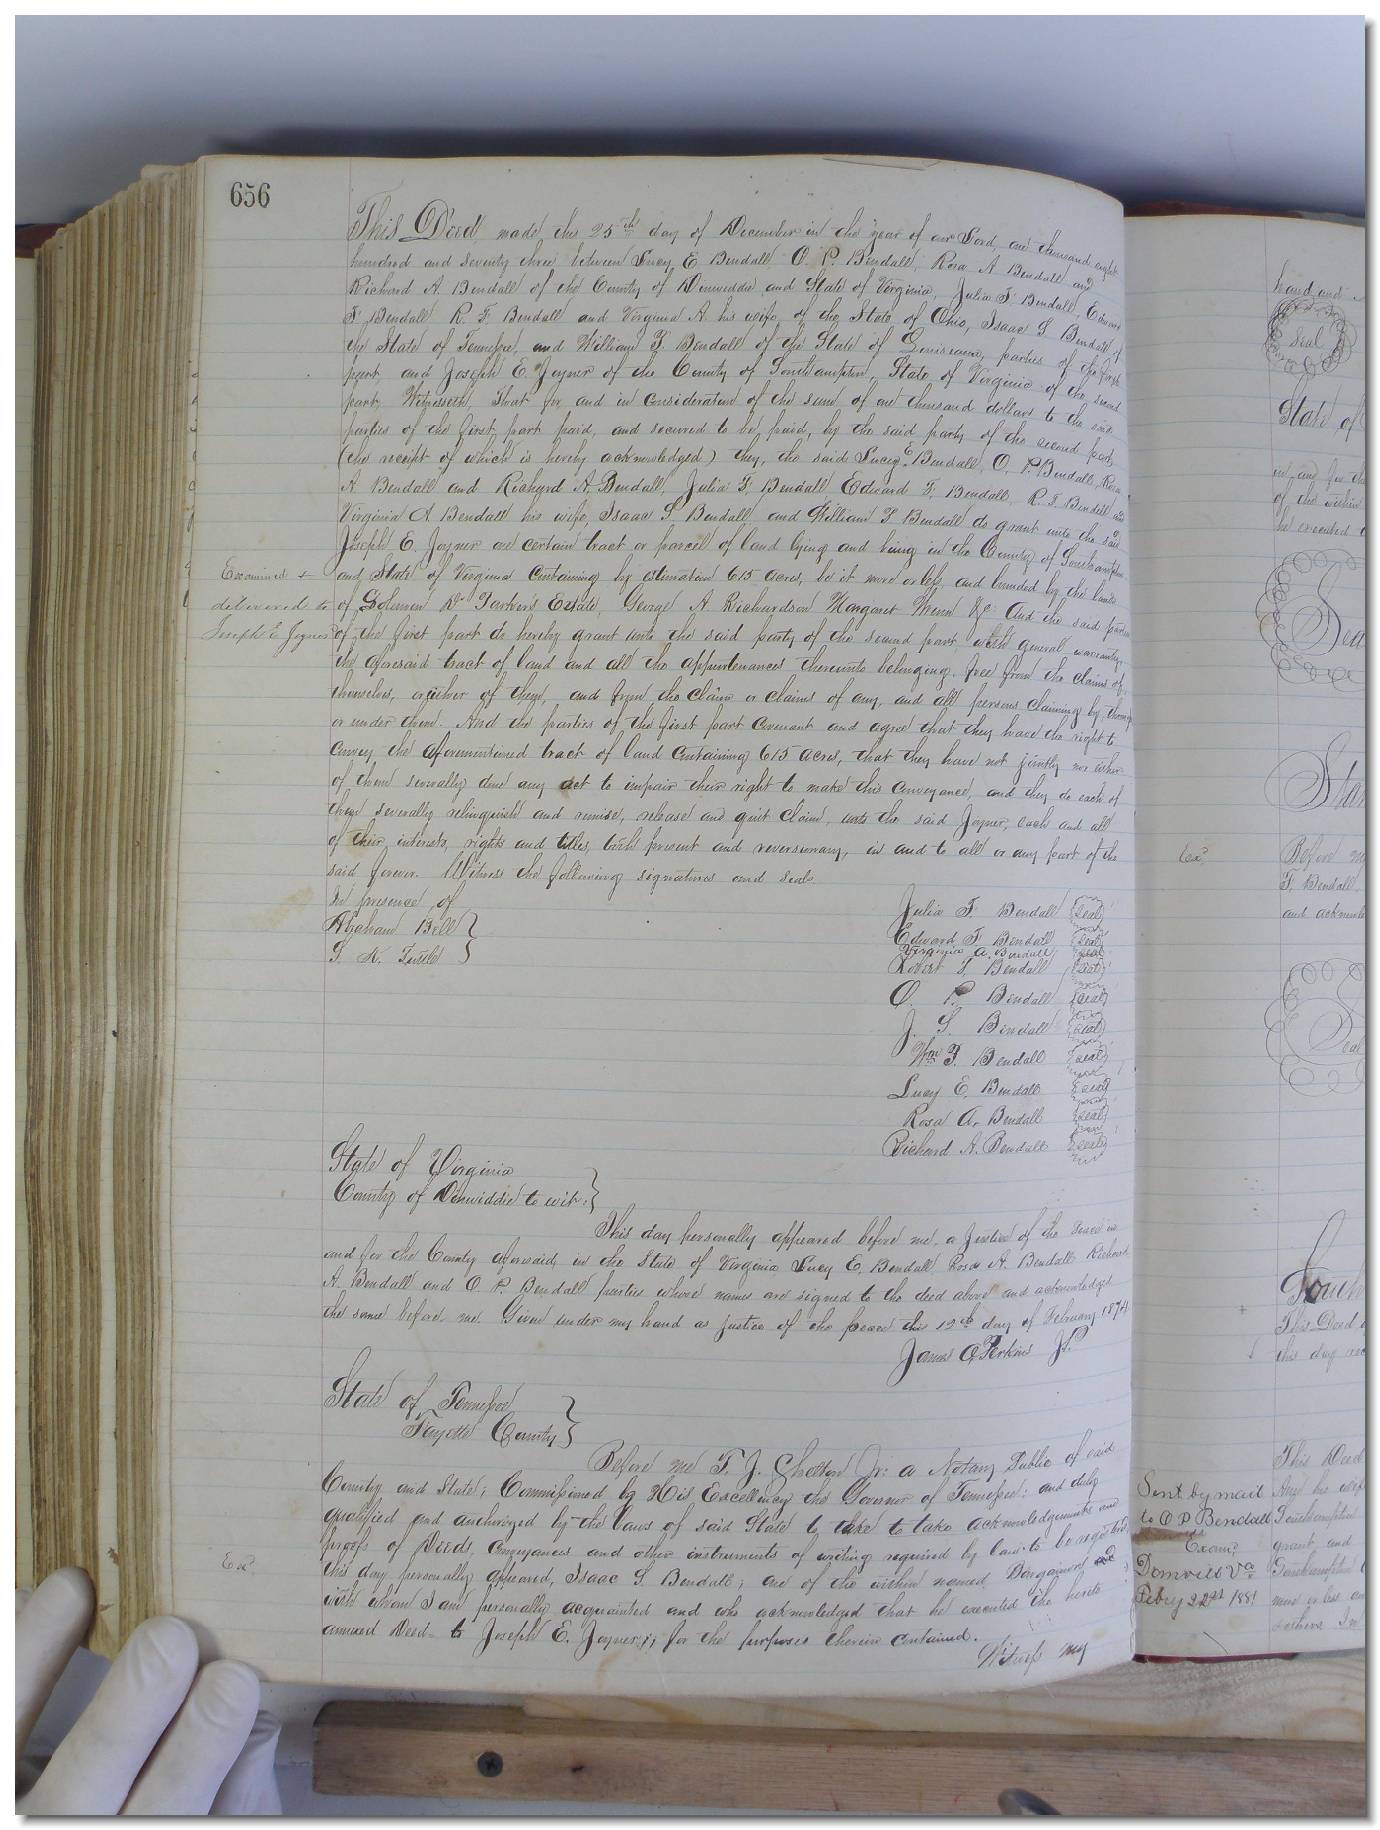 656
This Deed made this 25th day of December in the year of our Lord, one thousand eight
hundred and seventy three between Lucy E Bendall O. P. Bendall, Rosa A Bendall and
Richard A. Bendall of the County of Dinwiddie and State of Virginia, Julia F. Bendall, Edward
F. Bendall R. F. Bendall and Virginia A his wife, of the State of Ohio, Isaac S Bendall of
the State of Tennessee, and William F. Bendall of the State of Louisiana, parties of the first
part, and Joseph E. Joyner of the County of Southampton, State of Virginia of the second
part, Witnesseth, That for and in consideration of the sum of one thousand dollars to the said
parties of the first part paid, and secured to be paid, by the said party of the second part,
(the receipt of which is hereby acknowledged) they, the said Lucy E Bendall, O. P. Bendall, Rosa
A Bendall and Richard A. Bendall, Julia F. Bendall, Edward F. Bendall, R. F. Bendall and
Virginia A Bendall his wife, Isaac S. Bendall and William F Bendall do grant unto the said
Joseph E. Joyner one certain tract or parcel of land lying and being in the County of Southampton
and State of Virginia containing by estimation 615 acres, be it more or less, and bounded by the lands
of Solomon D. Parker's Estate, George A Richardson Margaret &c. And the said parties
of the first part do hereby grant unto the said party of the second part, with general warranty,
the aforesaid tract of land and all the appurtenances thereunto belonging, free from the claims of
themselves, or either of them, and from the claim or claims of any, and all persons claiming by, through
or under them. And the parties of the first part covenant and agree that they have the right to
convey the aforementioned tract of land containing 615 acres, that they have not jointly nor either
of them severally done any act to impair their right to make this conveyance, and they do each of
them severally relinquish and remise, release and quit claim, unto the said Joyner, each and all
of their, interests, rights and titles, both present and reversionary, in and to all or any part of the
said forever. Witness the following signatures and seals.
In presence of
Abraham Bell
S. K. Tuttle
Examined &
delivered to
Joseph E. Joyner
Julia F. Bendall seal
Edward F Bendall seal
Virginia A. Bendall seal
Robert F. Bendall seal
O. P. Bendall seal
J. S. Bendall seal
Wm F. Bendall seal
Lucy E. Bendall seal
Rosa A. Bendall seal
Richard A. Bendall seal
State of Virginia
County of Dinwiddie to wit:
This day personally appeared before me, a Justice of the Peace in
and for the County aforesaid, in the State of Virginia Lucy E. Bendall Rosa A. Bendall Richard
A. Bendall and O. P. Bendall parties whose names are signed to the deed above and acknowledged
the same before me. Given under my hand as justice of the peace this 12th day of February 1874
James Q. Perkins J.P.
State of Tennessee
Fayette County
Before me T. J. Shelton Jr: a Notary Public of said
County and State; Commissioned by His Excellency the Governor of Tennessee: and duly
qualified and authorized by the laws of said State to take to take acknowledgements and
proofs of Deeds, conveyances and other instruments of writing required by law to be registered.
this day personally appeared, Isaac S. Bendall; one of the within named Bargainors and
with whom I am personally acquainted and who acknowledged that he executed the hereto
annexed Deed to Joseph E. Joyner; for the purposes therein contained.
Witness my
Exd
hand and
Seal
State of
in and for th
of the within
he executed
Sea
Exd
Before me
F. Bendall
and acknowl
Seal
South
This Deed
this day rec
This Deed
Sent by mail
to O P Bendall
Exam
Feby 22nd 1881
Southampton
grant, and
Southampton
more or less an